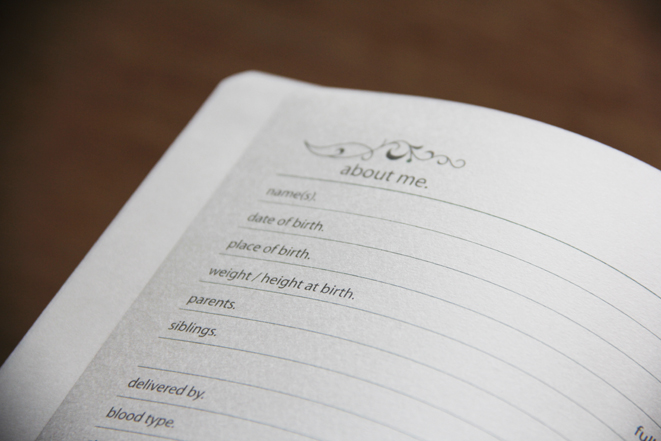 about me.
name(s).
date of birth.
place of birth.
weight / height at birth.
parents.
siblings.
delivered by.
blood type.